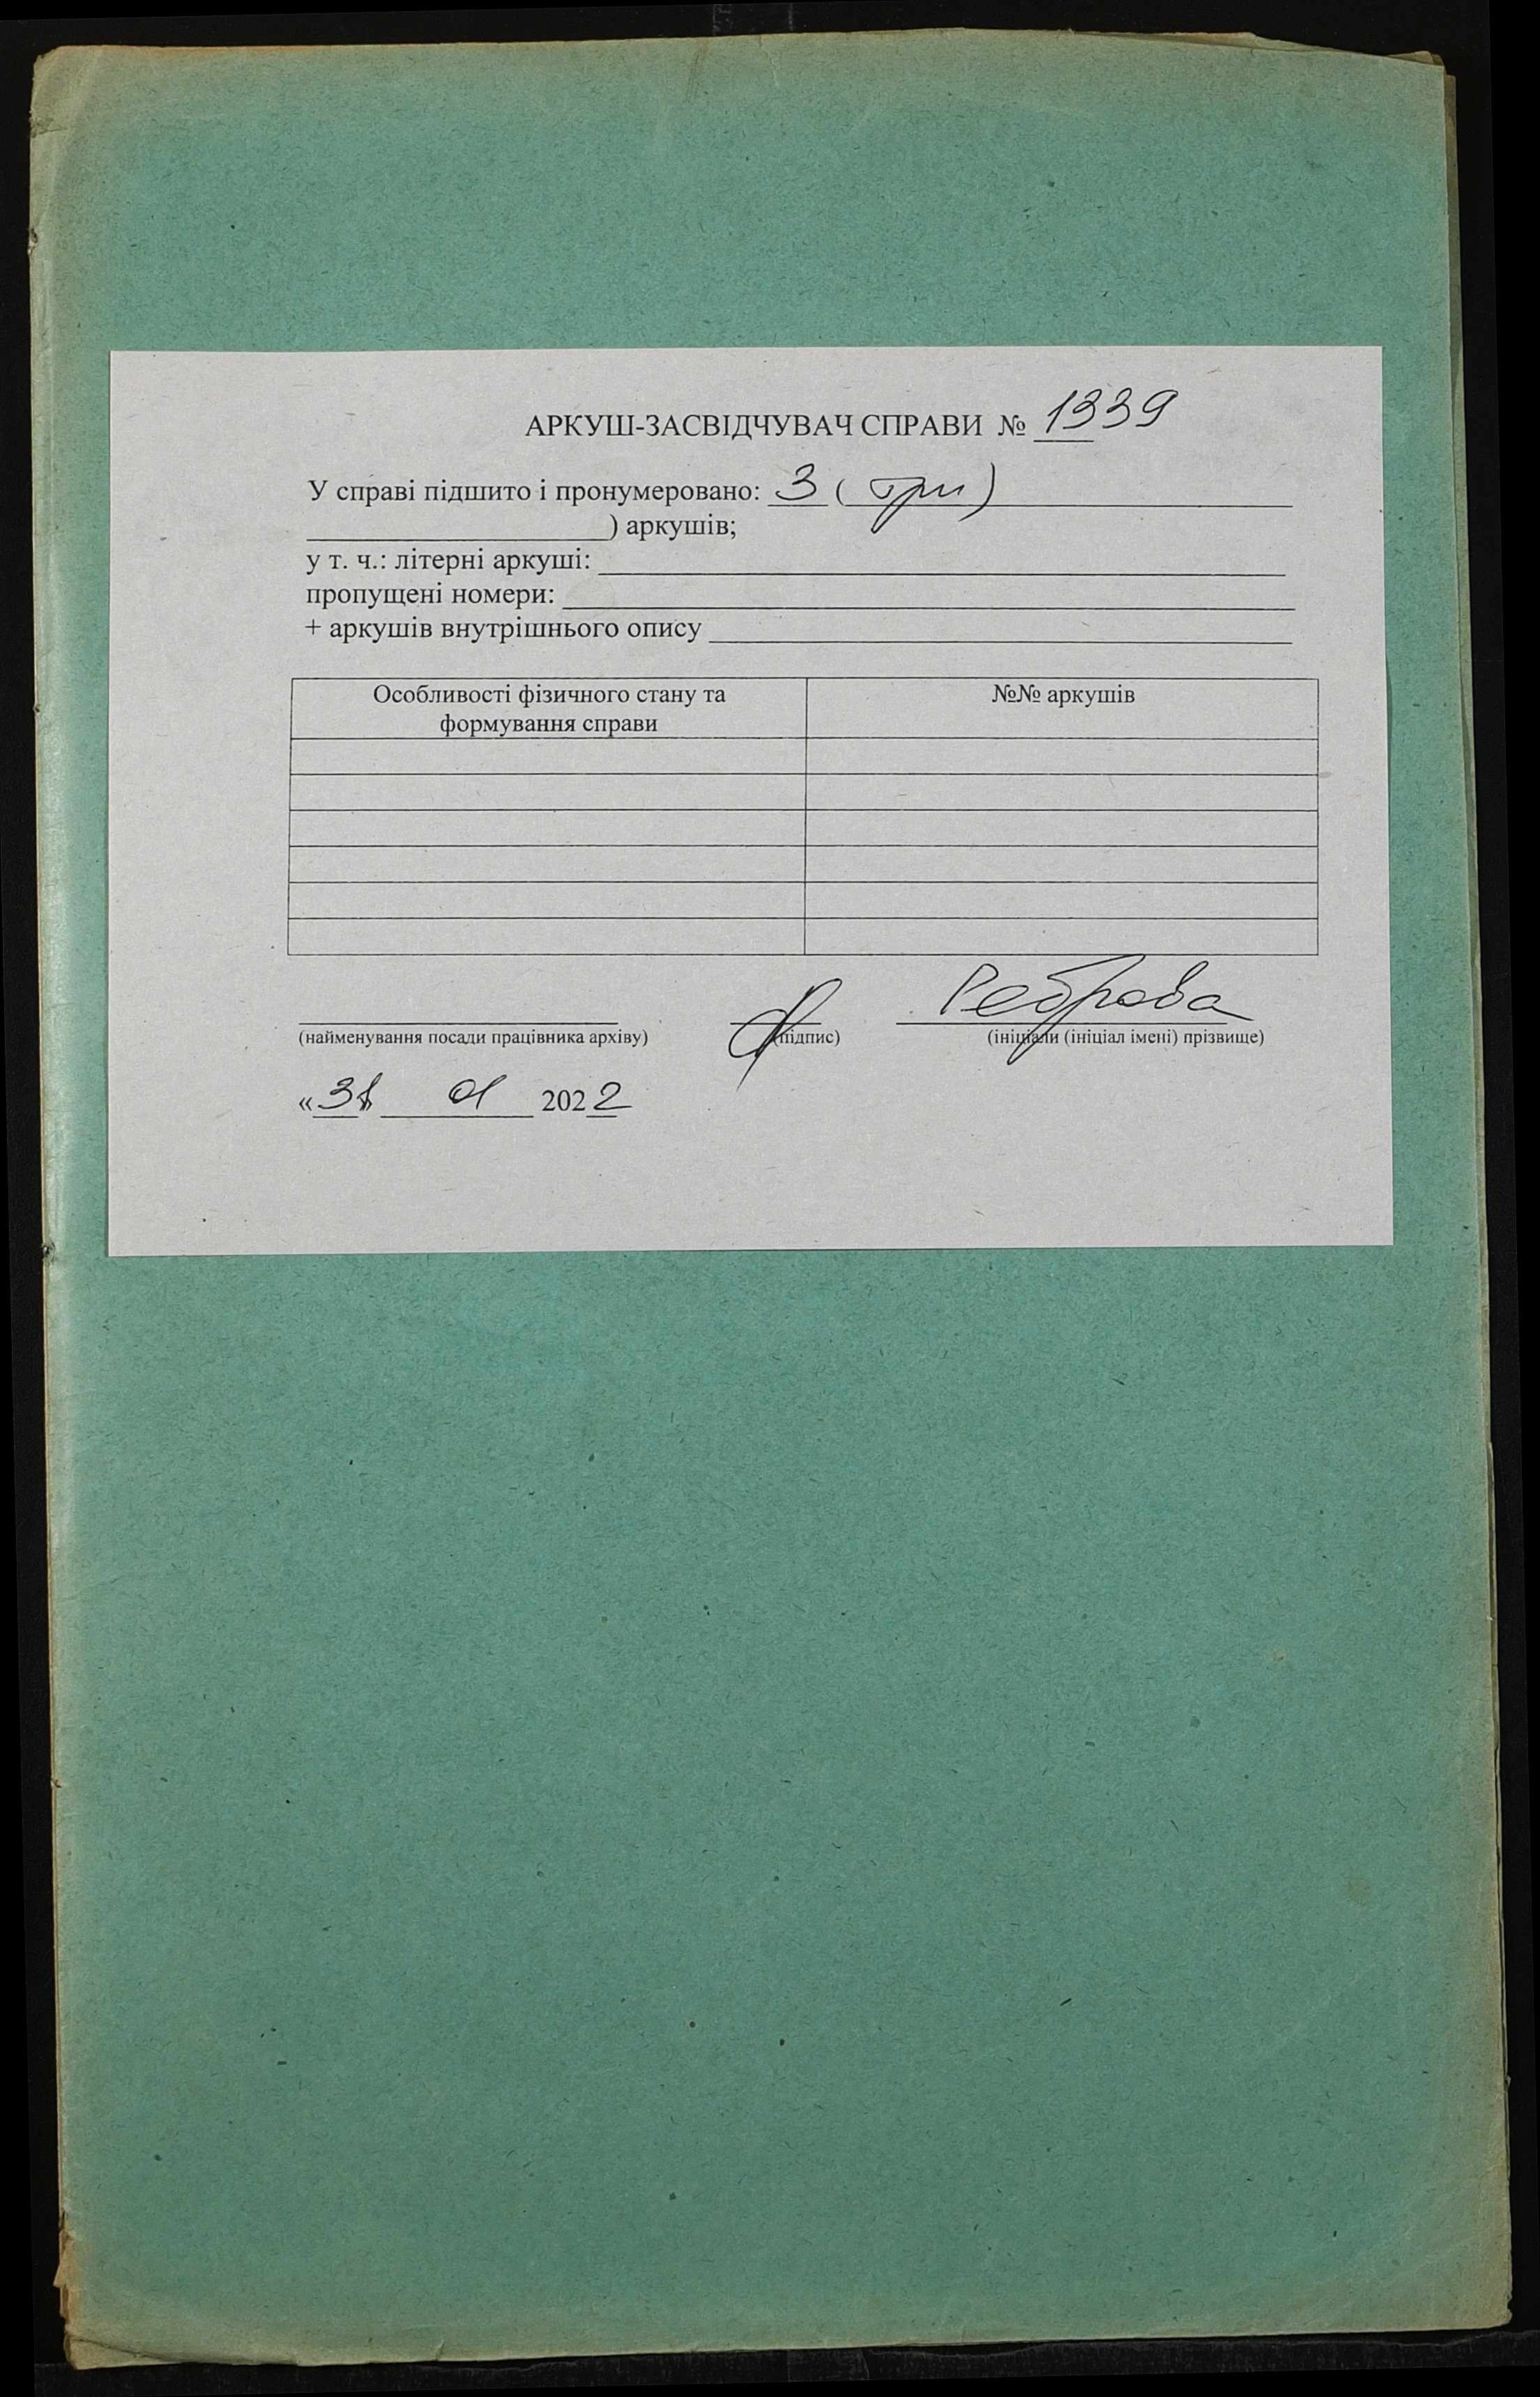 АРКУШ-ЗАСВІДЧУВАЧ СПРАВИ № 1339
У справі підшито і пронумеровано: 3 ( три )
____________________) аркушів;
у т. ч.: літерні аркуші: ____________________
пропущені номери: ____________________
+ аркушів внутрішнього опису ____________________
Особливості фізичного стану та
формування справи
№№ аркушів
Реброва
(найменування посади працівника архіву) (підпис) (ініціали (ініціал імені) прізвище)
«31» 01 2022